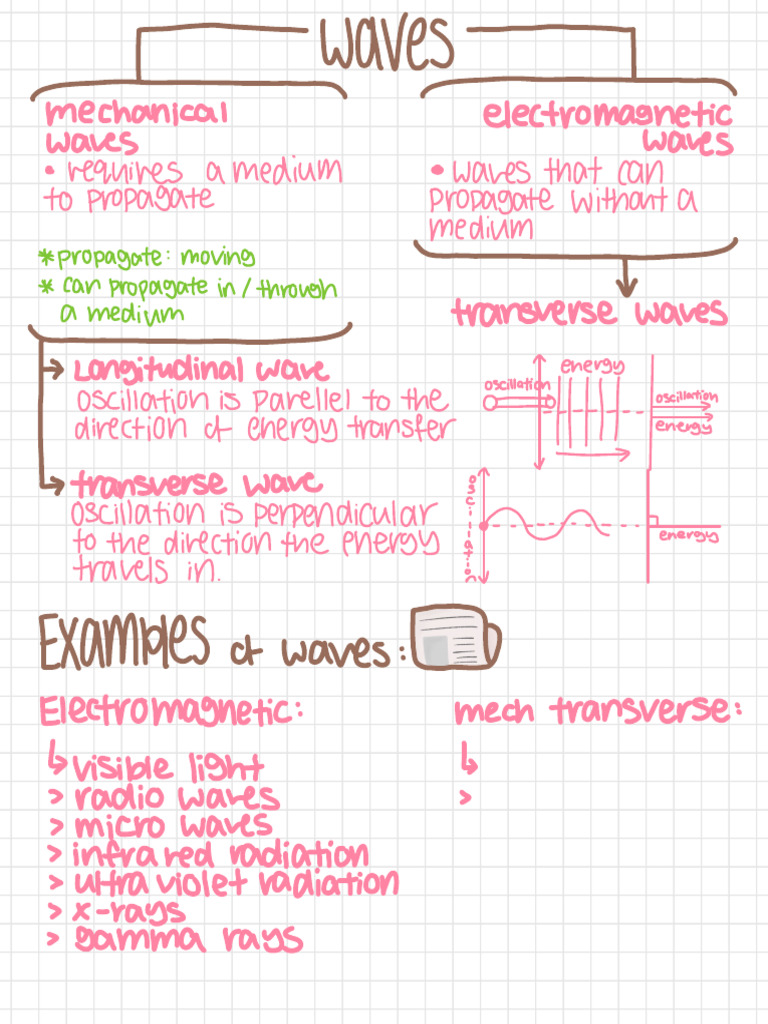 waves
mechanical
waves
• requires a medium
to propagate
electromagnetic
waves
• waves that can
propagate without a
medium
*propagate: moving
* can propagate in / through
a medium
transverse waves
Longitudinal wave
oscillation is parellel to the
direction of energy transfer
energy
oscillation
oscillation
energy
transverse wave
oscillation is perpendicular
to the direction the energy
travels in.
oscillation
energy
Examples of waves:
Electromagnetic:
visible light
> radio waves
> micro waves
> infra red radiation
> ultra violet radiation
> x-rays
> gamma rays
mech transverse:
>